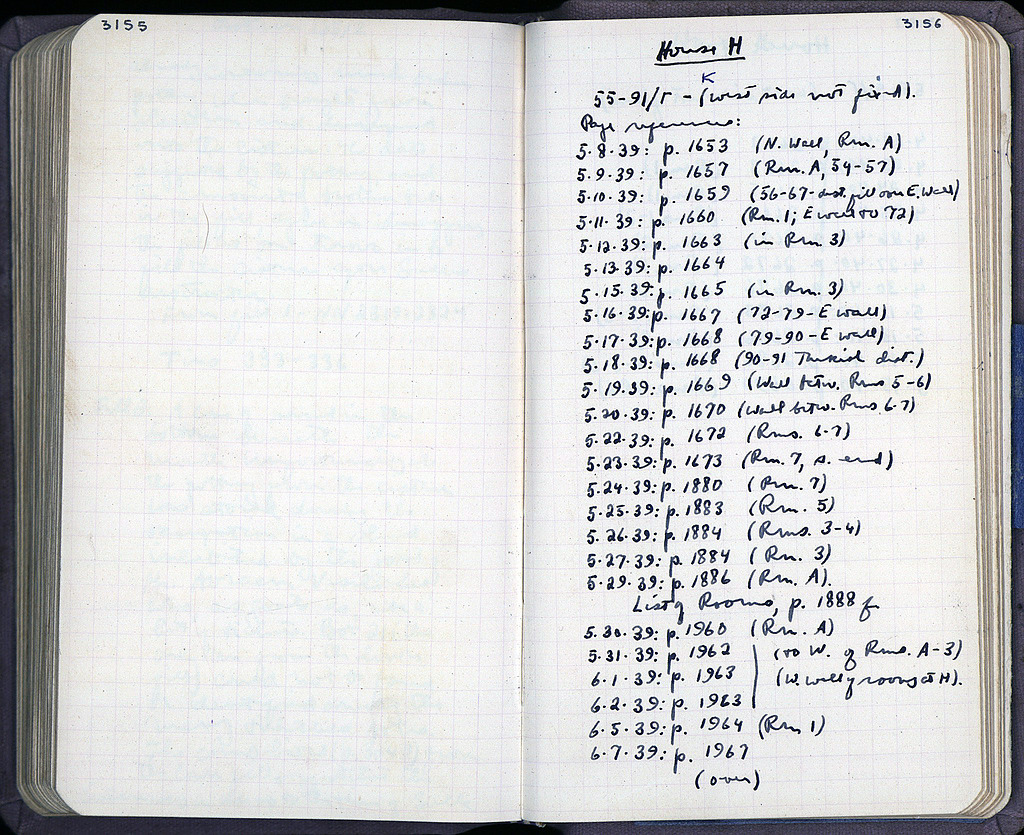 3155
3156
House H
K
55-91/Γ - (west side not fixed).
Page references:
5.8.39: p. 1653 (N. Wall, Rm. A)
5.9.39: p. 1657 (Rm. A, 54-57)
5.10.39: p. 1659 (56-67-dist. fill over E. Wall)
5.11.39: p. 1660 (Rm. 1; E wall to 72)
5.12.39: p. 1663 (in Rm. 3)
5.13.39: p. 1664
5.15.39: p. 1665 (in Rm. 3)
5.16.39: p. 1667 (72-79-E wall)
5.17.39: p. 1668 (79-90-E wall)
5.18.39: p. 1668 (90-91 Turkish dist.)
5.19.39: p. 1669 (Wall betw. Rms 5-6)
5.20.39: p. 1670 (Wall betw. Rms 6-7)
5.22.39: p. 1672 (Rms. 6-7)
5.23.39: p. 1673 (Rm. 7, s. end)
5.24.39: p. 1880 (Rm. 7)
5.25.39: p. 1883 (Rm. 5)
5.26.39: p. 1884 (Rms. 3-4)
5.27.39: p. 1884 (Rm. 3)
5.29.39: p. 1886 (Rm. A).
List of Rooms, p. 1888 f.
5.30.39: p. 1960 (Rm. A)
5.31.39: p. 1962 (to W. of Rms. A-3)
6.1.39: p. 1963 (W. wall of rooms at H).
6.2.39: p. 1963
6.5.39: p. 1964 (Rm 1)
6.7.39: p. 1967
(over)